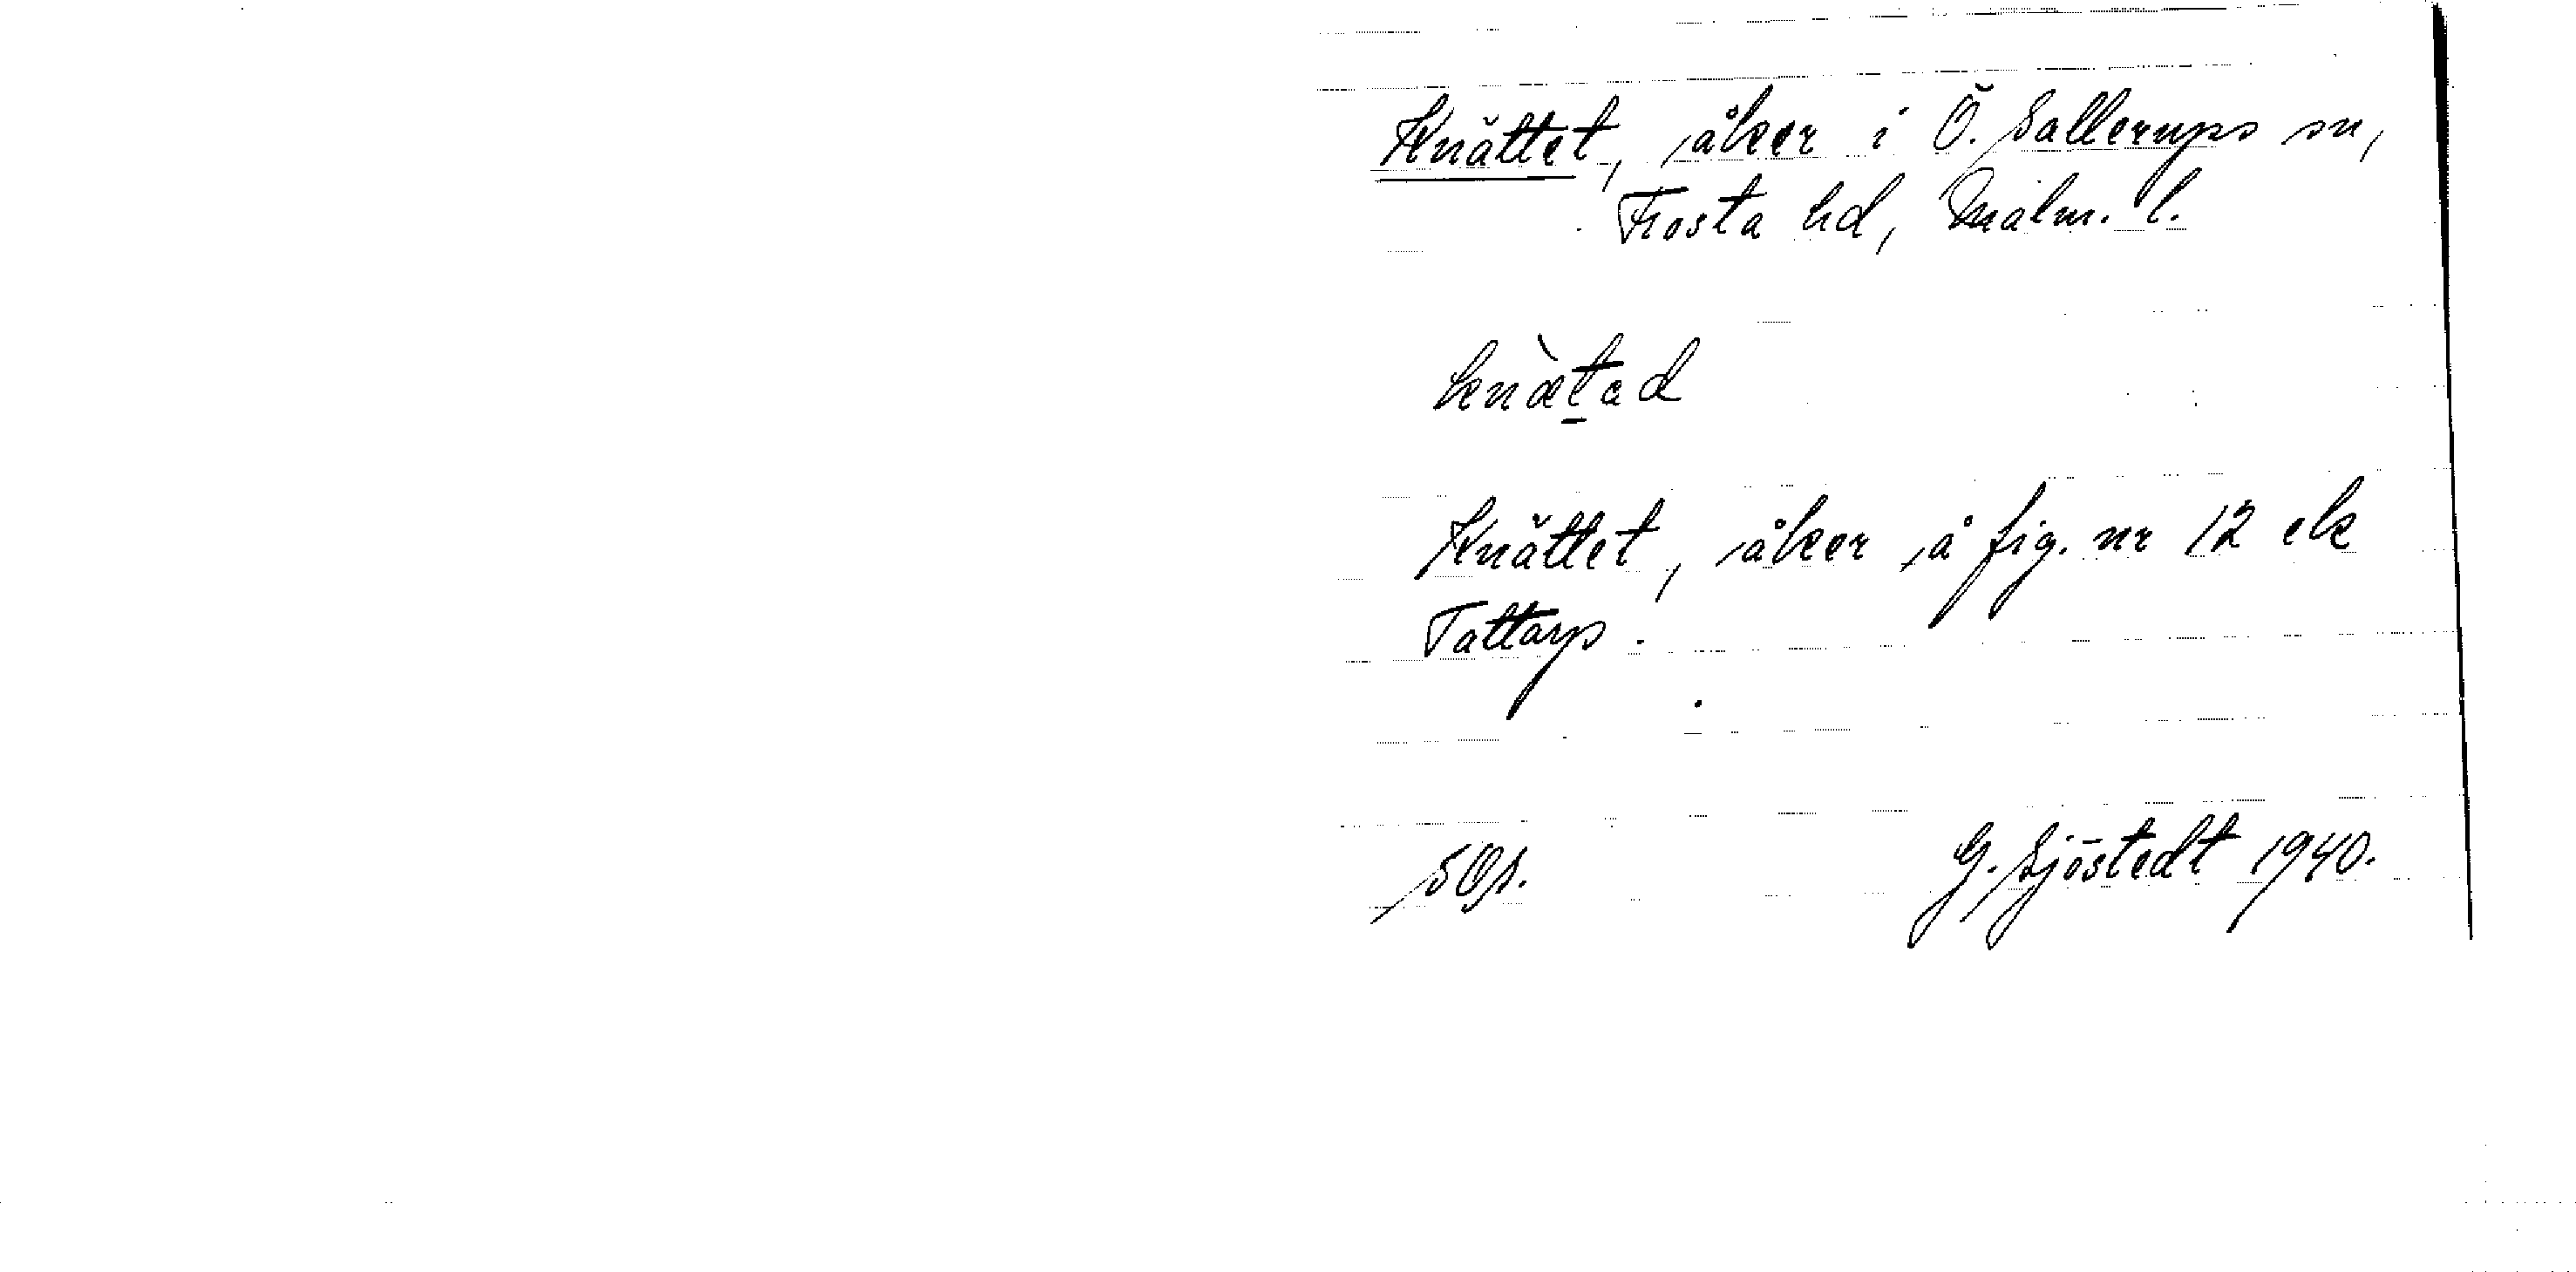 Knättet, åker i Ö. Sallerups sn,
Frosta hd, Malm. l.
knæ̀tad
Knättet, åker å fig. nr 12 ek
Tattarp.
SOs.
G. Sjöstedt 1940.